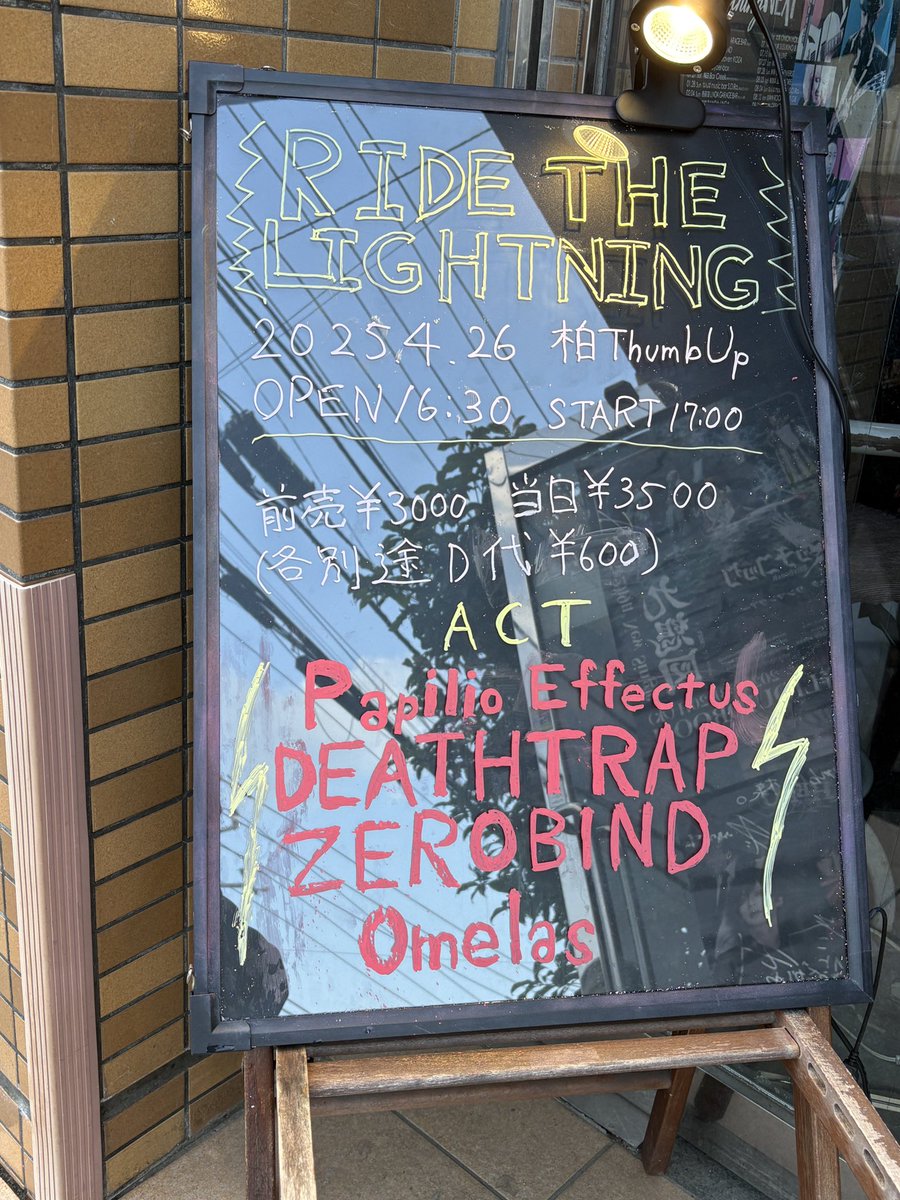 RIDE THE
LIGHTNING
2025.4.26 柏ThumbUp
OPEN/16:30 START 17:00
前売¥3000 当日¥3500
(各別途 D代¥600)
ACT
Papilio Effectus
DEATHTRAP
ZEROBIND
Omelas